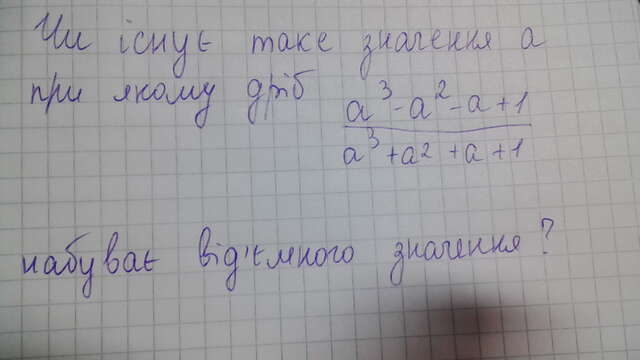 Чи існує таке значення a
при якому дріб
a³-a²-a+1
a³+a2+a+1
набуває від'ємного значення?